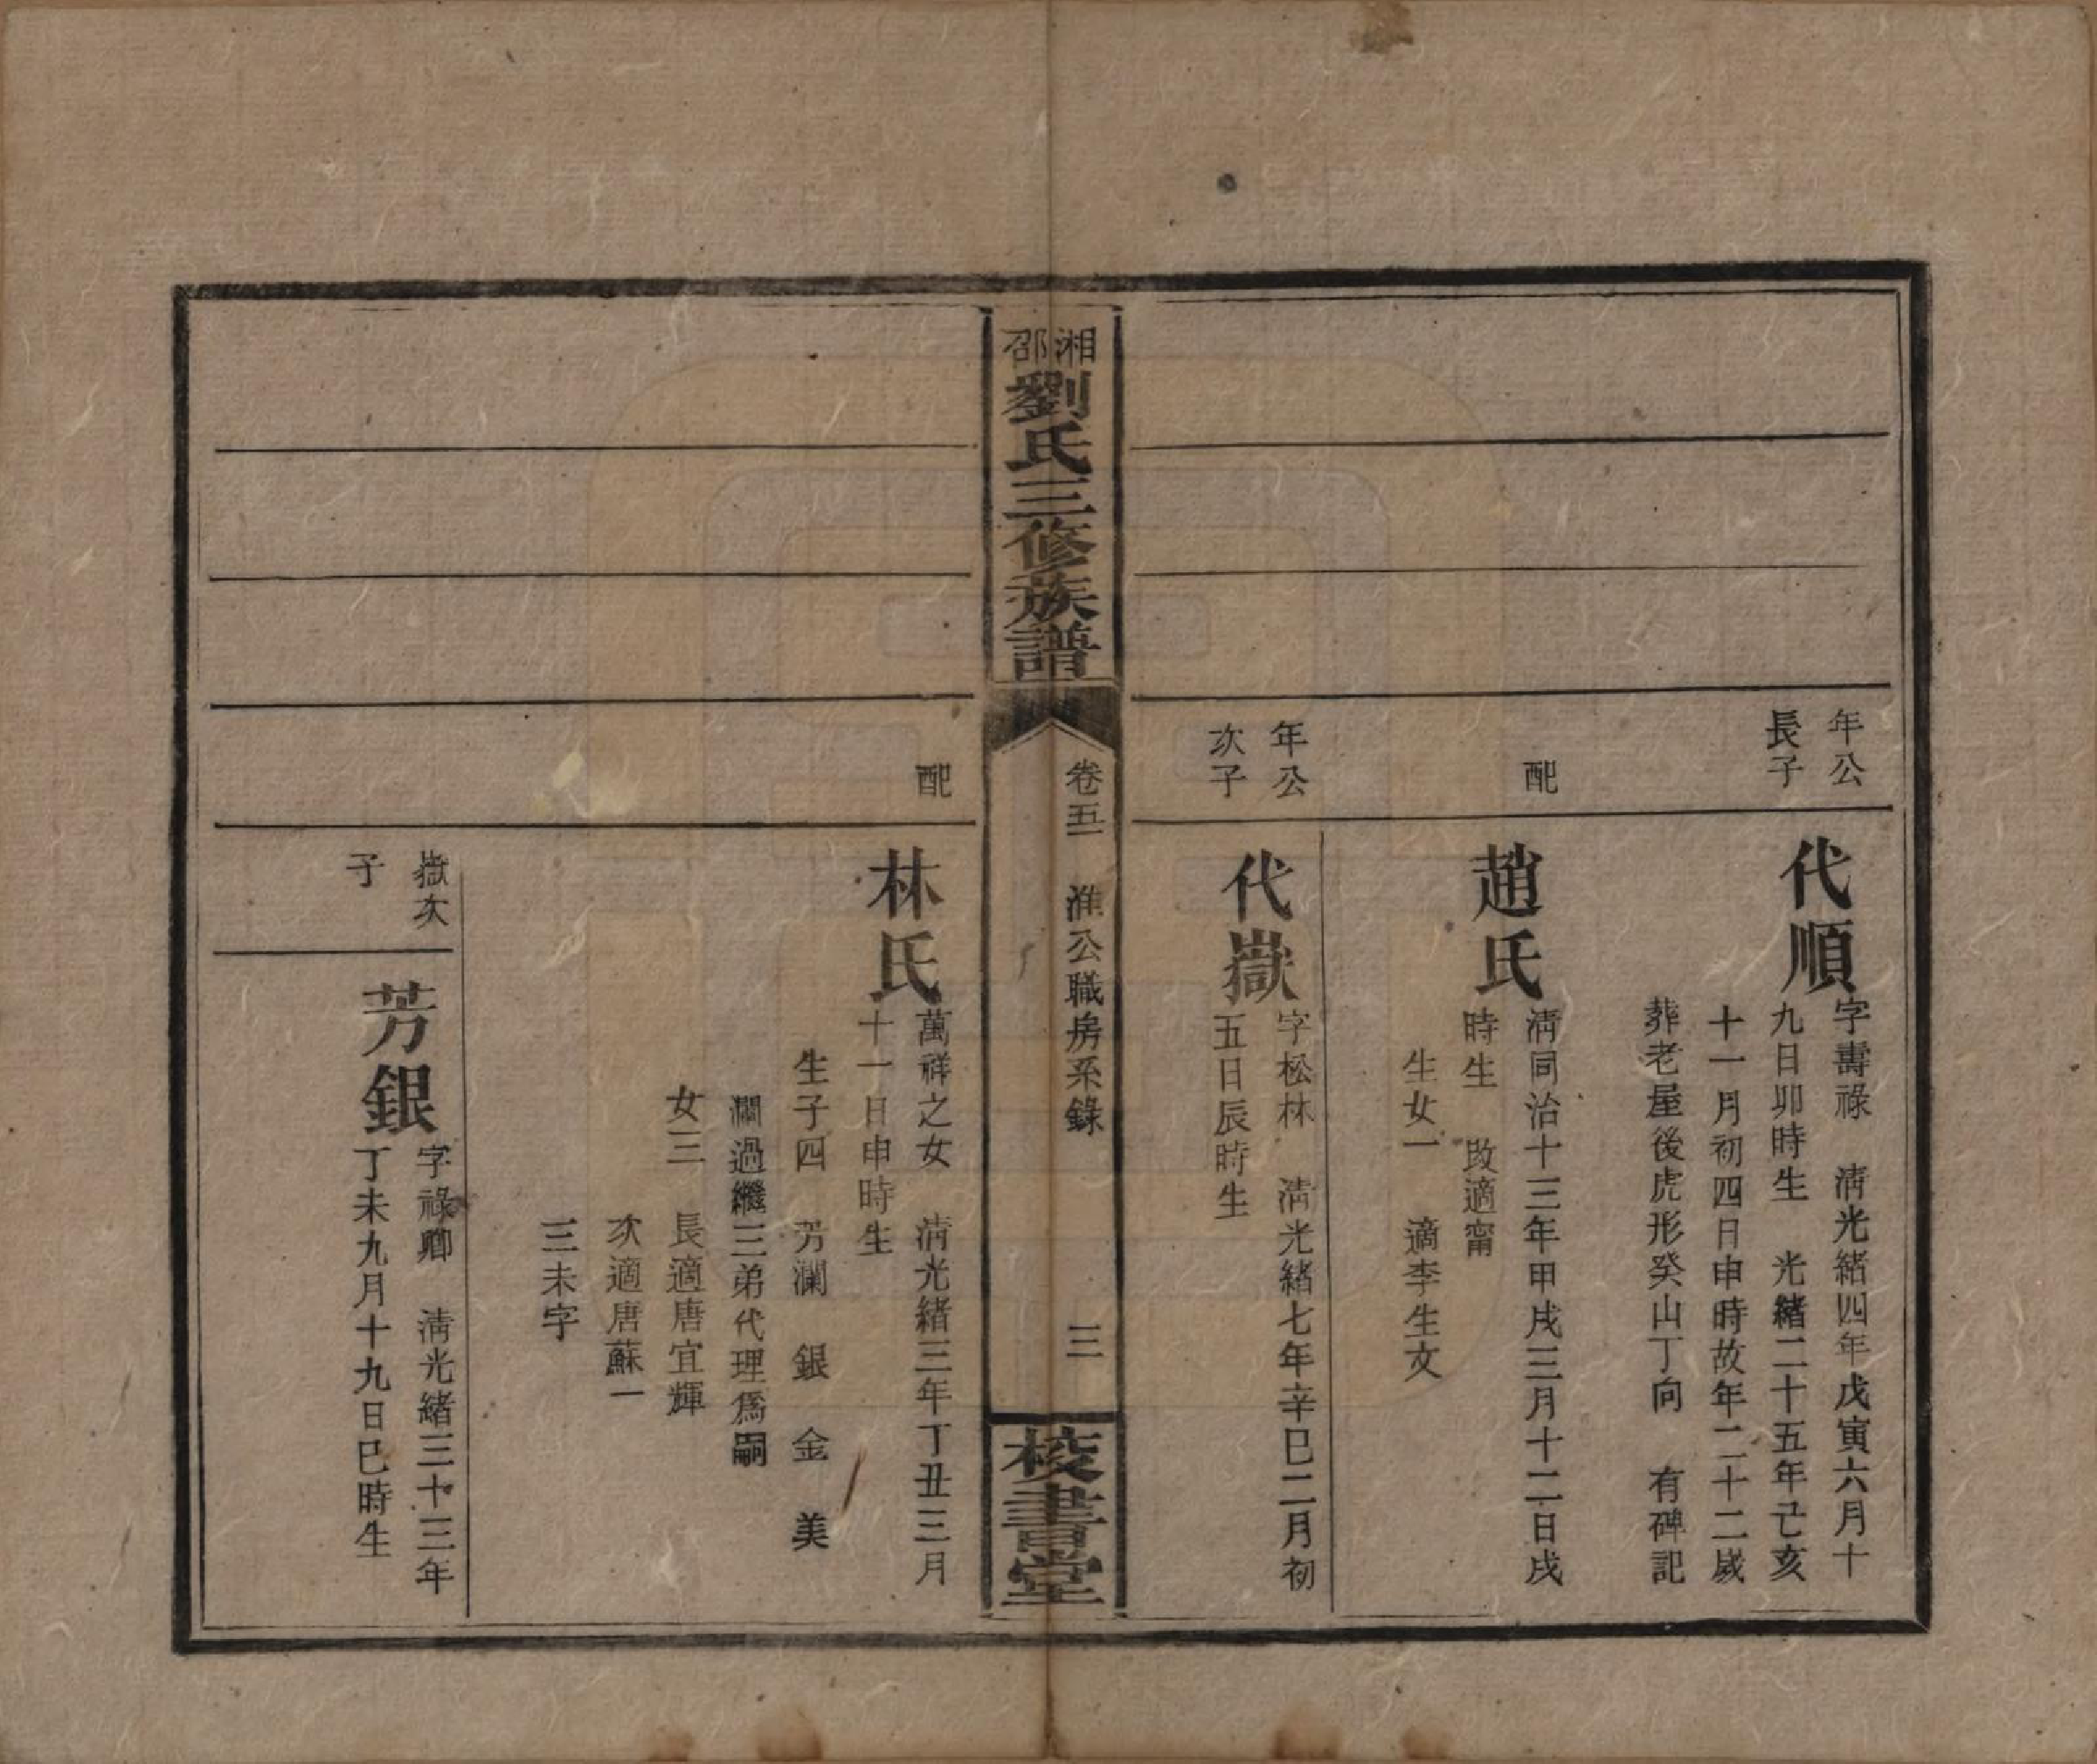 年公
長子
代順
字壽祿　清光緒四年戊寅六月十
九日卯時生　光緒二十五年己亥
十一月初四日申時故年二十二歲
葬老屋後虎形癸山丁向　有碑記
配
趙氏
清同治十三年甲戌三月十二日戌
時生　改適甯
生女一　適李生文
年公
次子
代嶽
字松林　清光緒七年辛巳二月初
五日辰時生
湘邵劉氏三修族譜
卷五　淮公職房系錄
三
校書堂
配
林氏
萬祥之女　清光緒三年丁丑三月
十一日申時生
生子四　芳瀾　銀　金　美
瀾過繼三弟代理爲嗣
女三　長適唐宜輝
次適唐蘇一
三未字
嶽次
子
芳銀
字祿卿　清光緒三十三年
丁未九月十九日巳時生